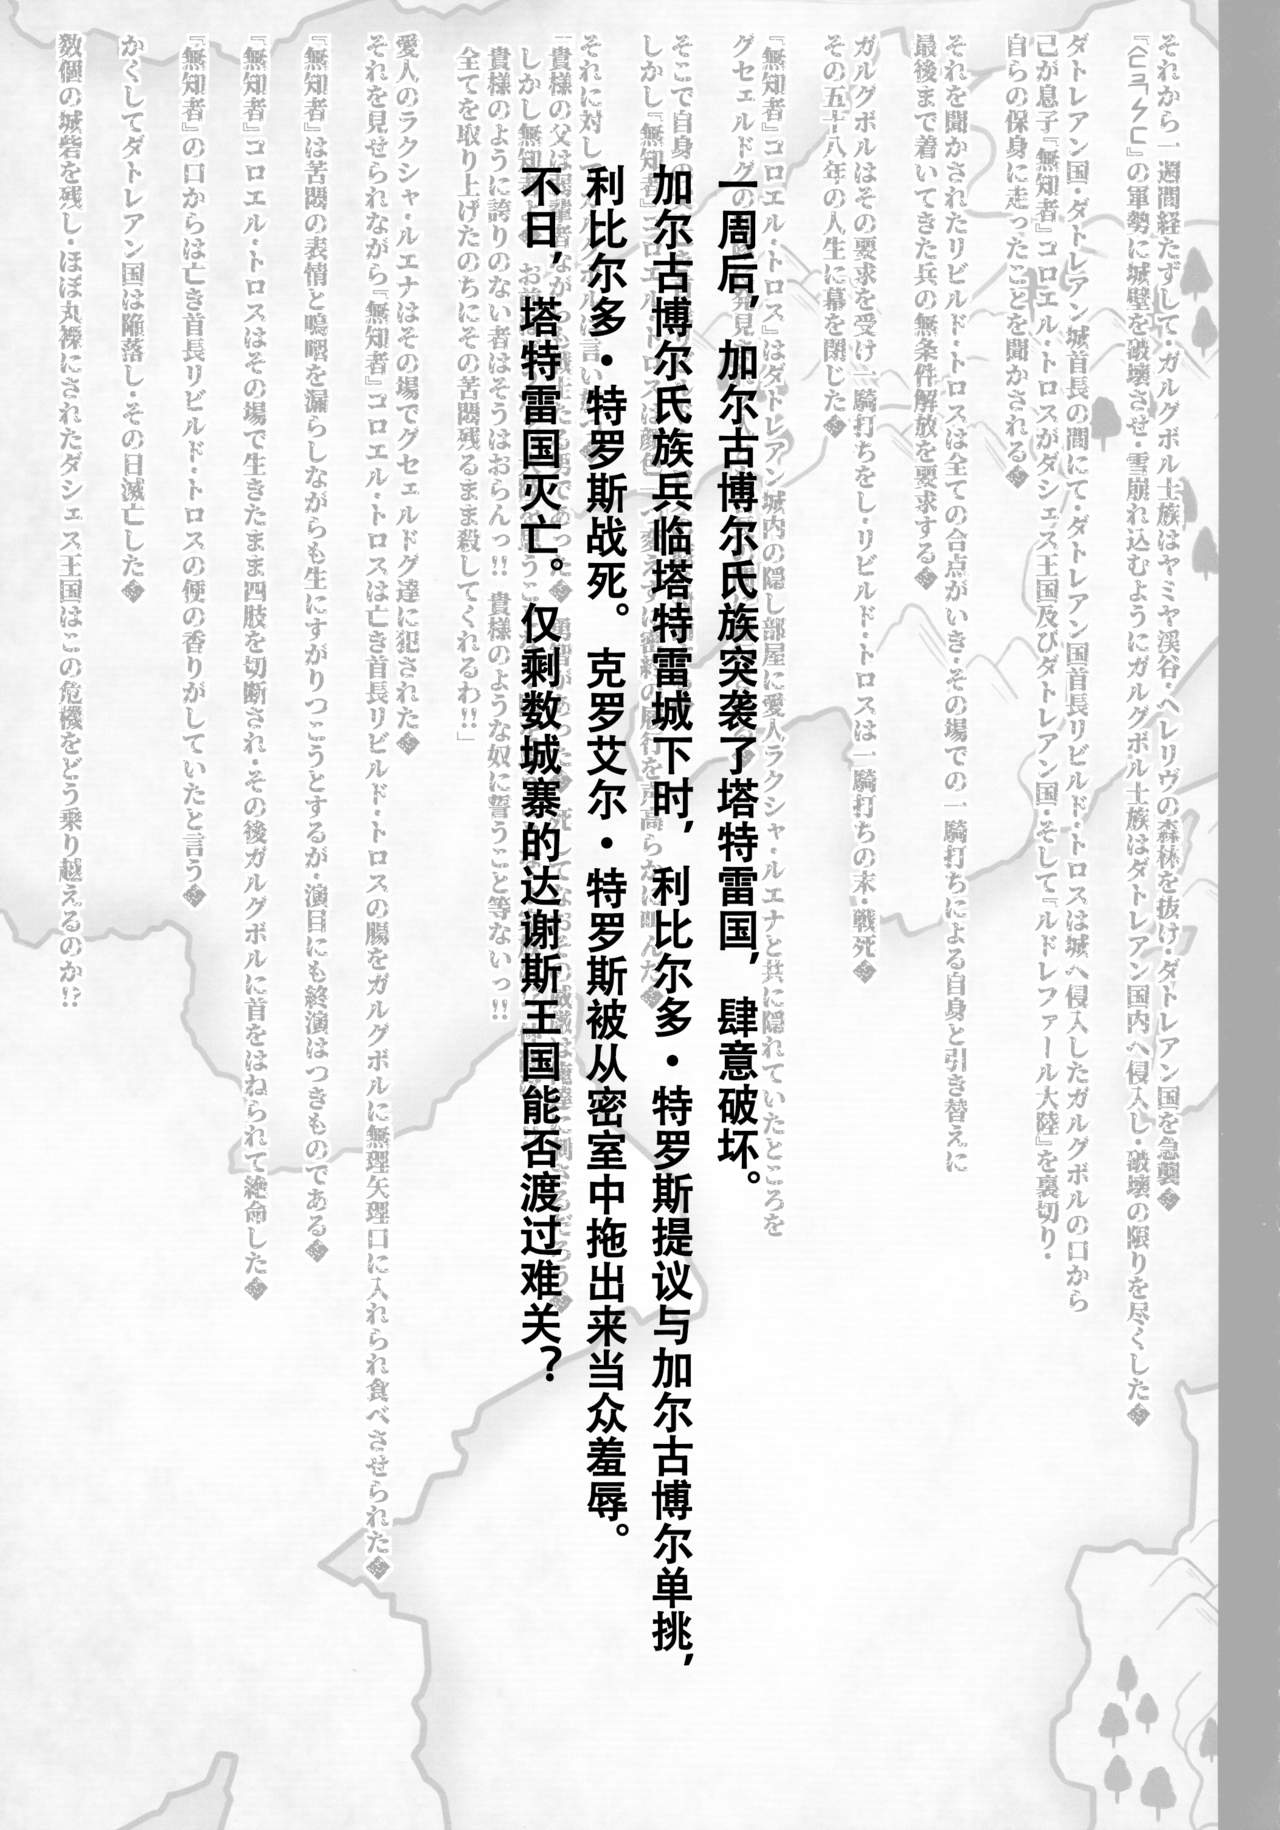 それから一週間経たずして・ガルグボル士族はヤミヤ渓谷・ヘレリヴの森林を抜け・ダトレアン国を急襲
の軍勢に城壁を破壊させ・雪崩れ込むようにガルグボル士族はダトレアン国内へ侵入し・破壊の限りを尽くした
ダトレアン国・ダトレアン城首長の間にて・ダトレアン国首長リビルド・トロスは城へ侵入したガルグボルの口から
己が息子『無知者』コロエル・トロスがダシェス王国及びダトレアン国・そして『ルドレファール大陸』を裏切り・
自らの保身に走ったことを聞かされる
それを聞かされたリビルド・トロスは全ての合点がいき・その場での一騎打ちによる自身と引き替えに
最後まで着いてきた兵の無条件解放を要求する
ガルグボルはその要求を受け一騎打ちをし・リビルド・トロスは一騎打ちの末・戦死
その五十八年の人生に幕を閉じた
『無知者』コロエル・トロス』はダトレアン城内の隠し部屋に愛人ラクシャ・ルエナと共に隠れていたところを
グセェルドグの
一周后，加尔古博尔氏族突袭了塔特雷国，肆意破坏。
そこで自身の
加尔古博尔氏族兵临塔特雷城下时，利比尔多·特罗斯提议与加尔古博尔单挑，
しかし『無知者』コロエル・トロスは顔色
を声高らかに叫んだ
それに対して
利比尔多·特罗斯战死。克罗艾尔·特罗斯被从密室中拖出来当众羞辱。
「貴様の父は
不日，塔特雷国灭亡。仅剩数城寨的达谢斯王国能否渡过难关？
貴様のように誇りのない者はそうはおらんっ!! 貴様のような奴に誓うこと等ないっ!!
全てを取り上げたのちにその苦悶残るまま殺してくれるわ!!」
愛人のラクシャ・ルエナはその場でグセェルドグ達に犯された
それを見せられながら『無知者』コロエル・トロスは亡き首長リビルド・トロスの腸をガルグボルに無理矢理口に入れられ食べさせられた
『無知者』は苦悶の表情と嗚咽を漏らしながらも生にすがりつこうとするが・演目にも終演はつきものである
『無知者』コロエル・トロスはその場で生きたまま四肢を切断され・その後ガルグボルに首をはねられて絶命した
『無知者』の口からは亡き首長リビルド・トロスの便の香りがしていたと言う
かくしてダトレアン国は陥落し・その日滅亡した
数個の城砦を残し・ほぼ丸裸にされたダシェス王国はこの危機をどう乗り越えるのか!?